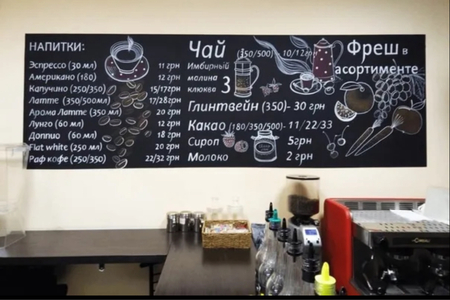 НАПИТКИ:
Эспрессо (30 мл) 11 грн
Американо (180) 12 грн
Капучино (250/350) 15/17грн
Латте (350/500мл) 17/28грн
Арома Латте (350 мл) 20 грн
Лунго (60 мл) 12 грн
Доппио (60 мл) 18 грн
Flat white (250 мл) 20 грн
Раф кофе (250/350) 22/32 грн
Чай (350/500) 10/12грн
Имбирный
малина
клюква 3
Глинтвейн (350)- 30 грн
Какао (180/350/500)- 11/22/33
Сироп 5грн
Молоко 2 грн
Фреш в
асортименте